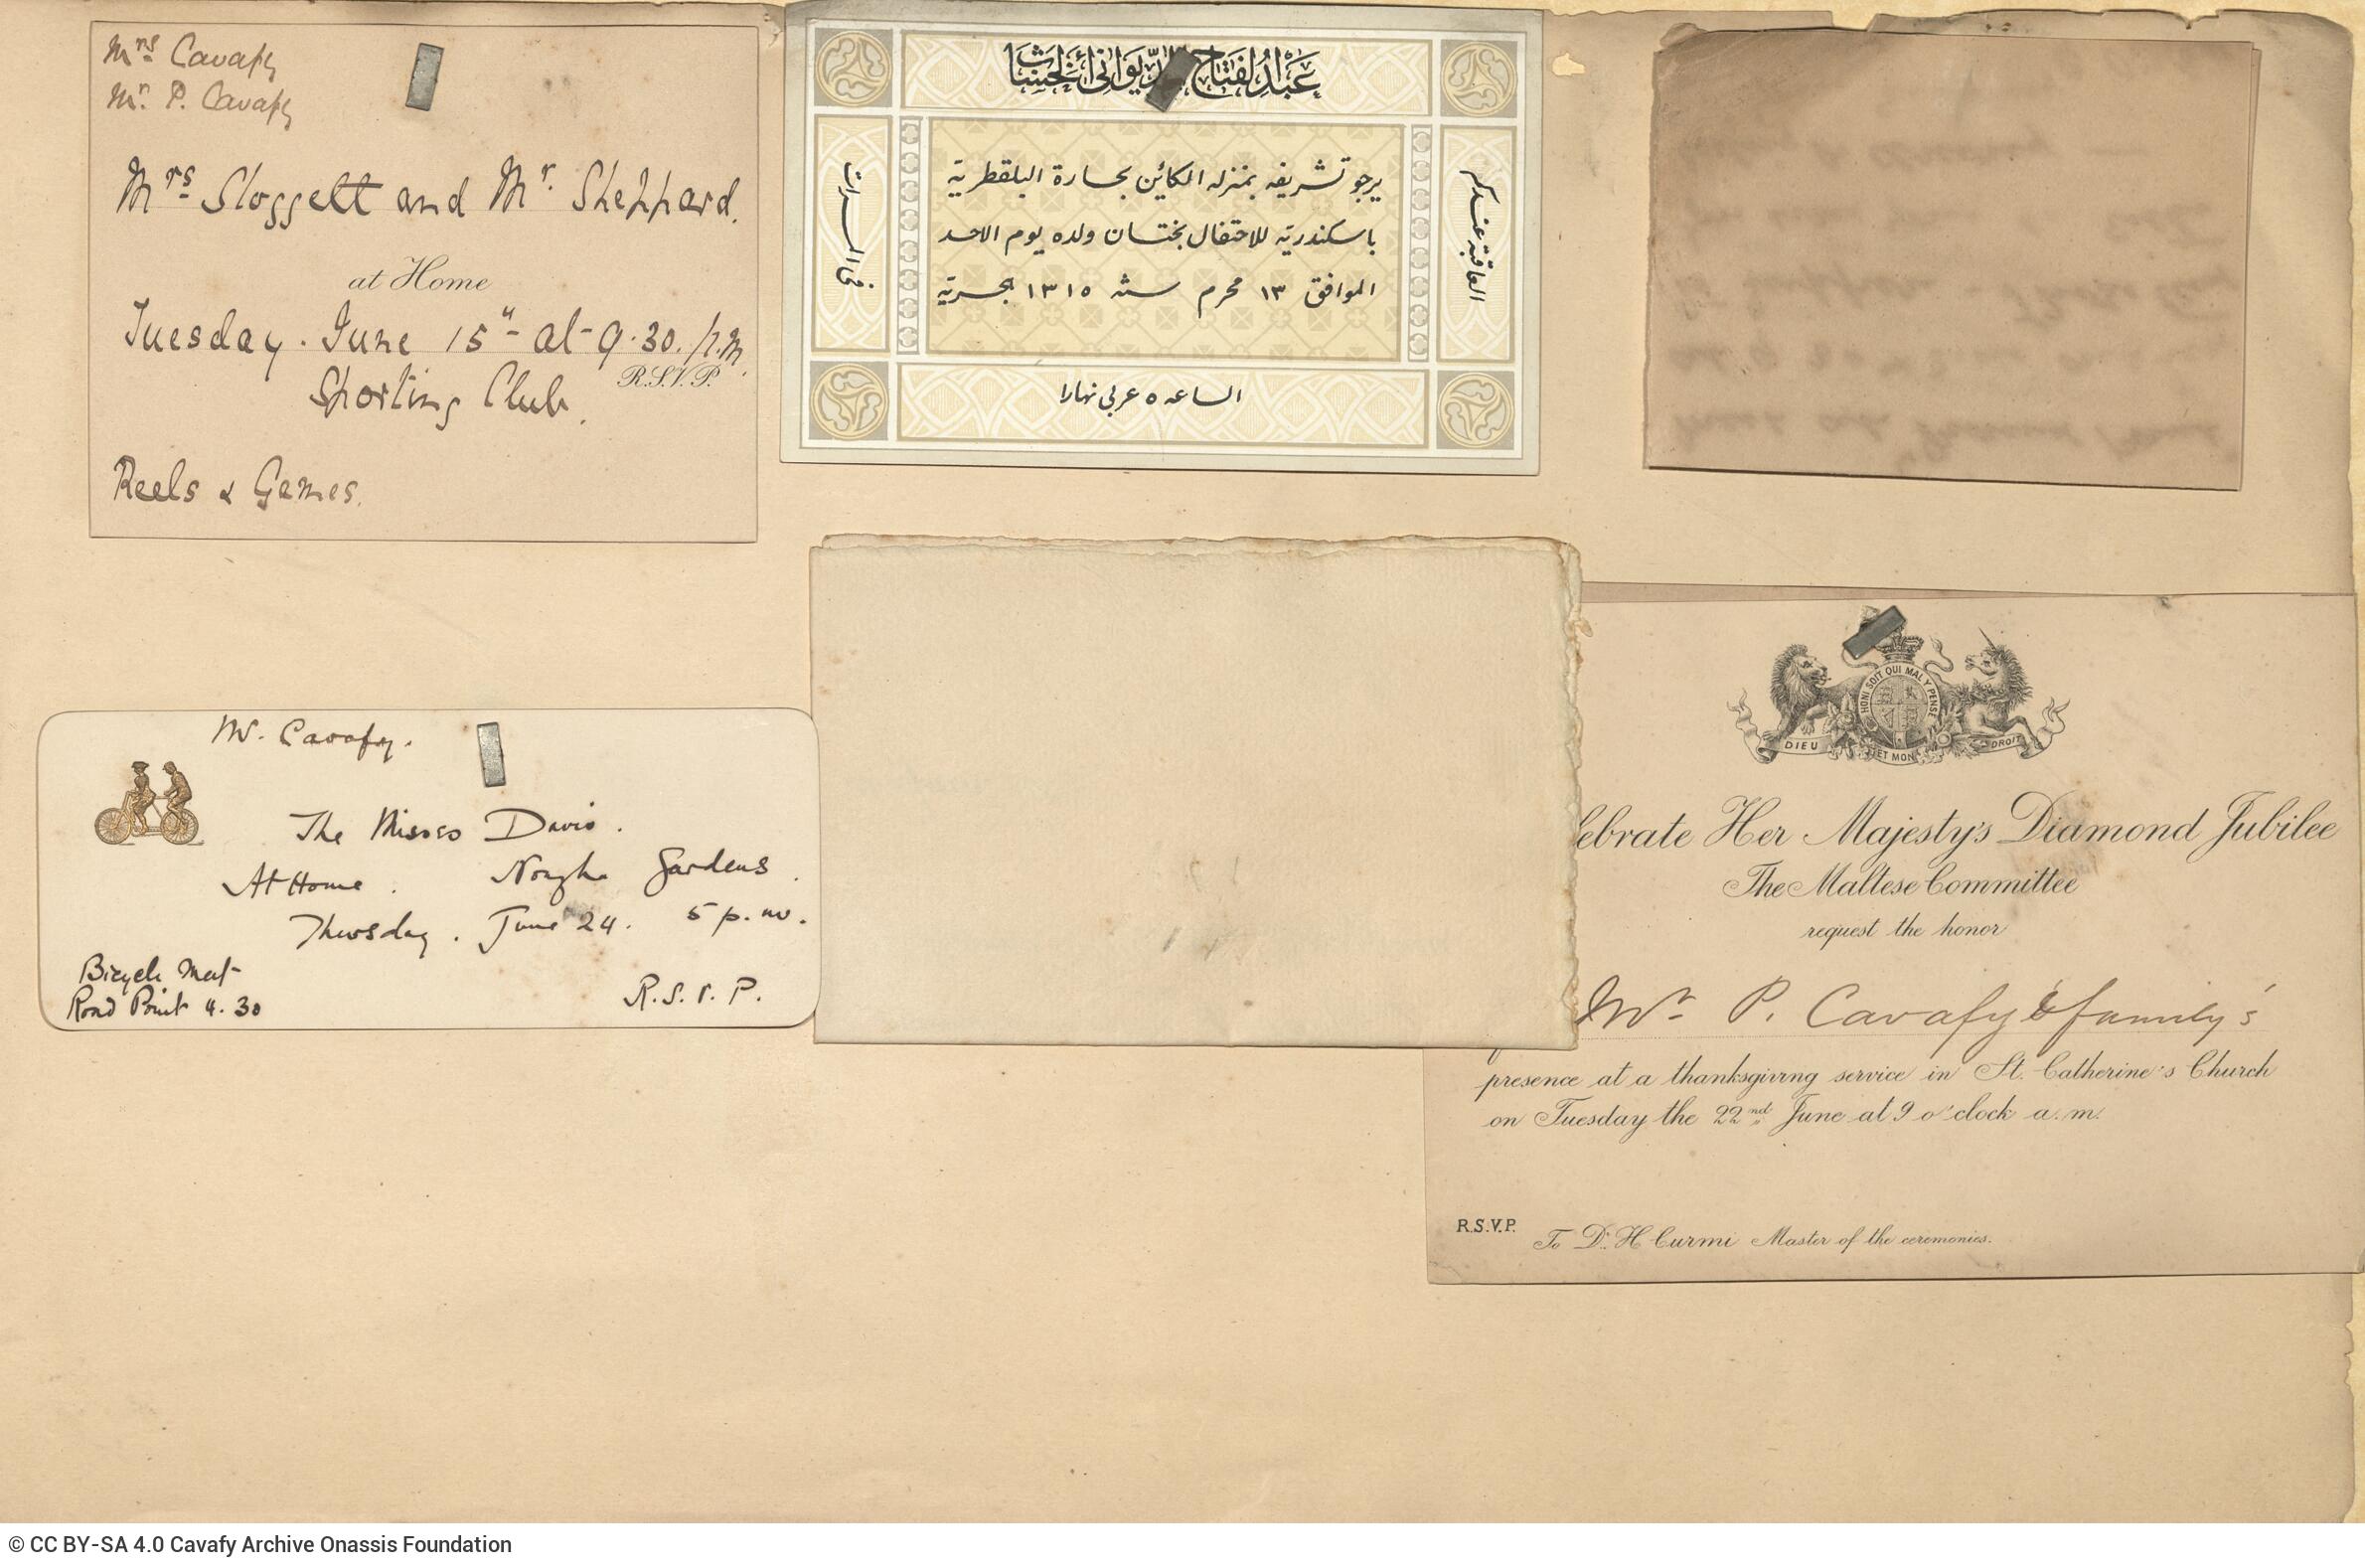 Mrs Cavafy
Mr. P. Cavafy
Mrs Sloggett and Mr. Sheppard.
at Home
Tuesday. June 15" at 9.30. p.m.
R.S.V.P.
Sporting Club.
Reels & Games.
عبد الفتاح الديواني أغا خشبات
يرجو تشريفه بمنزله الكائن بحارة البلقطرية
باسكندرية للاحتفال بختان ولده يوم الاحد
الموافق ١٣ محرم سنة ١٣١٥ هجرية
الساعه ٥ عربى نهارا
العاقبة عندكم
فى المسرات
Mr. Cavafy.
The Misses Davis.
At Home. Nouzha Gardens.
Thursday. June 24. 5 p.m.
Bicycle Meet
Rond Point 4.30
R.S.V.P.
HONI SOIT QUI MAL Y PENSE
DIEU ET MON DROIT
lebrate Her Majesty's Diamond Jubilee
The Maltese Committee
request the honor
Mr P. Cavafy & family's
presence at a thanksgiving service in St. Catherine's Church
on Tuesday the 22nd June at 9 o'clock a.m.
R.S.V.P. To Dr. H Curmi Master of the ceremonies.
© CC BY-SA 4.0 Cavafy Archive Onassis Foundation